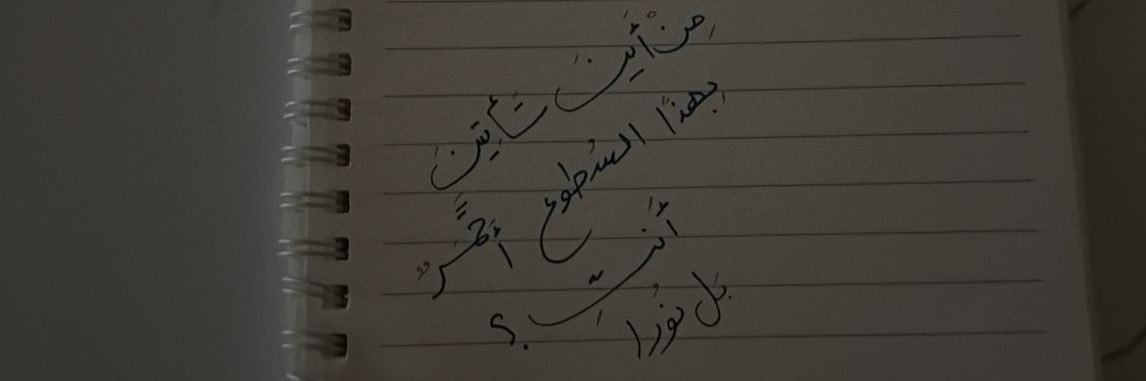 مِنْ أَينَ تَأتِينَ
بِهذا السُطوع أَقَمَرٌ
أَنتِ ؟
بَل نُورًا